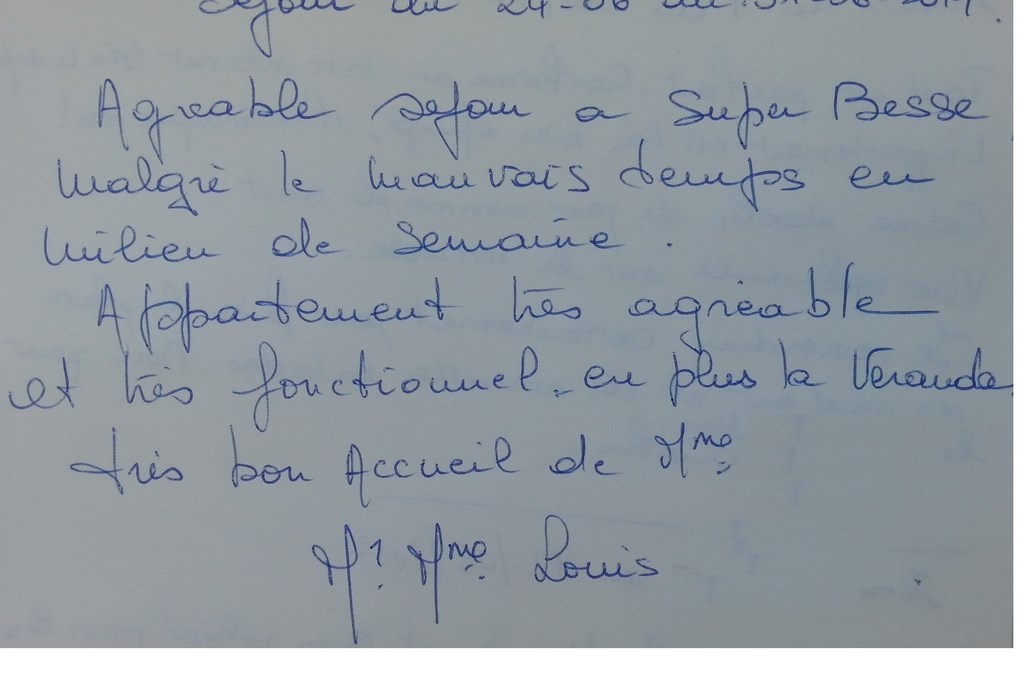 séjour du 24-08 au 31-08-2019.
Agréable séjour a Super Besse
malgrè le mauvais temps en
milieu de semaine.
Appartement très agréable
et très fonctionnel. en plus la Véranda
très bon Accueil de Mme
Mr Mme Louis